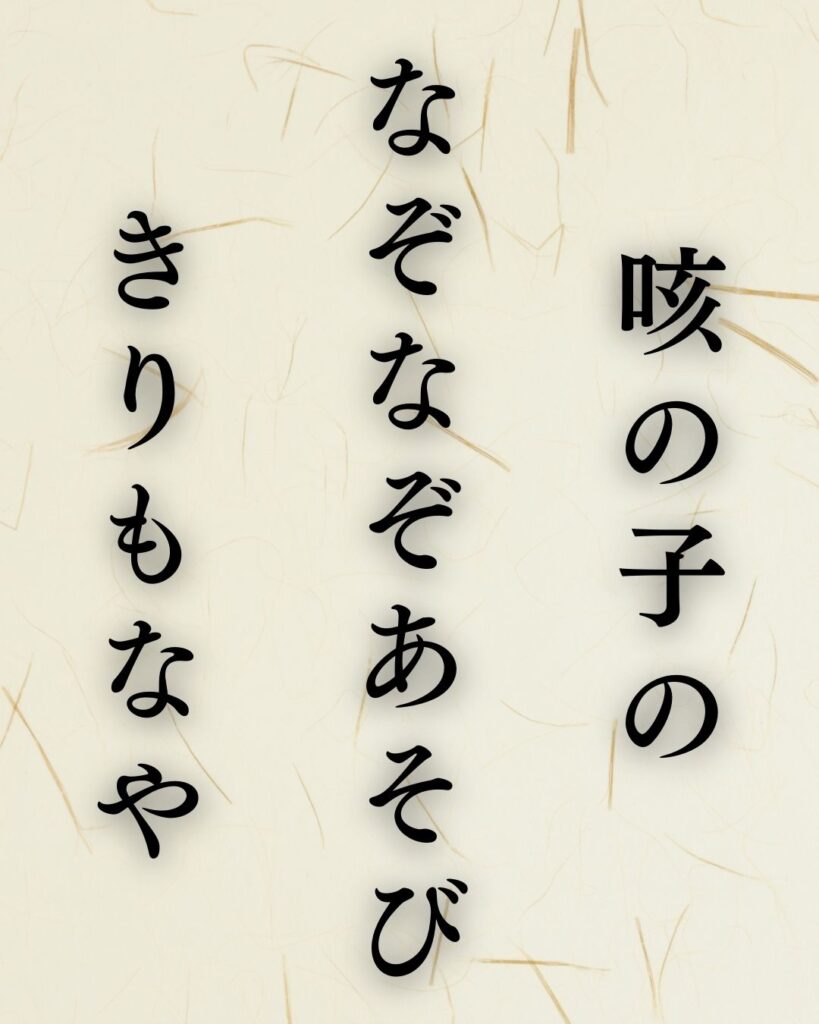 咳の子の
なぞなぞあそび
きりもなや